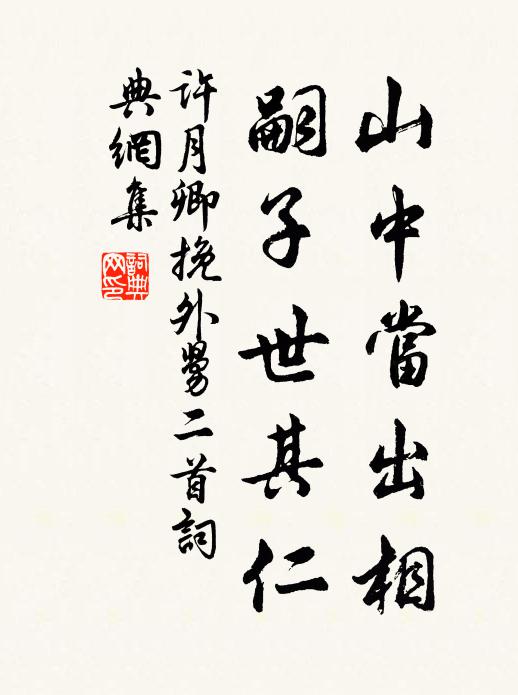 山中當出相
嗣子世其仁
許月卿挽外舅二首詞
典網集
詞典網印